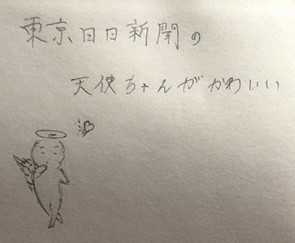 東京日日新聞の
天使ちゃんがかわいい